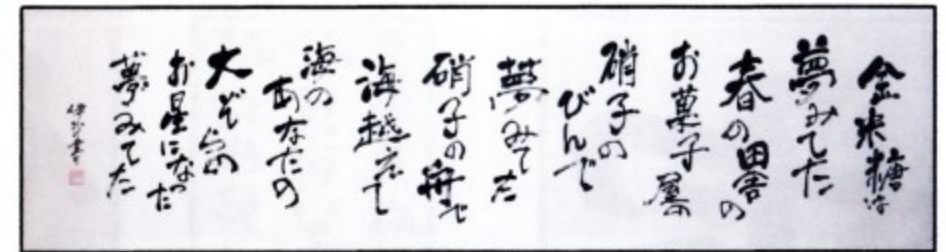 金米糖は
夢みてた
春の田舎の
お菓子屋の
硝子の
びんで
夢みてた
硝子の舟で
海越えて
海の
あなたの
大ぞらの
お星になった
夢みてた